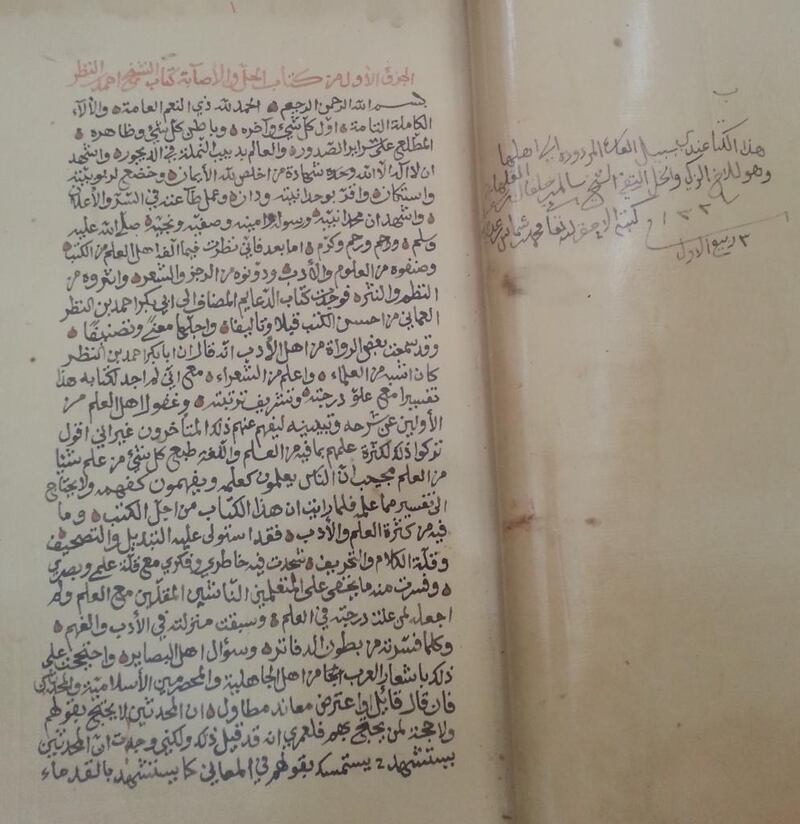 الجزء الأول من كتاب الحل والإصابة كتاب الشيخ احمد النظر
بسم الله الرحمن الرحيم الحمد لله ذي النعم العامة والآلاء
الكاملة التامة اول كل شيء وآخره وباطن كل شيء وظاهره
المطلع على سراير الصدور والعالم بدبيب النملة في الديجور واشهد
ان لا اله الا الله وحده شهادة من اخلص لله الأيمان وخضع لربوبيته
واستكان واقر بوحدانيته ودان وعمل طاعته في السر والأعلان
واشهد ان محمدا نبيه ورسوله وامينه وصفيه ونجيه صلى الله عليه
وسلم ورحم وكرم اما بعد فاني نظرت فيما الفه اهل العلم من الكتب
وصنفوه من العلوم والأدب ودونوه من الرجز والشعر واثروه من
النظم والنثر فوجدت كتاب الدعايم المضاف الى ابي بكر احمد بن النظر
العماني من احسن الكتب قيلا وتاليفا واجلها معنى وتصنيفا
وقد سمعت بعض الرواة من اهل الأدب انه قال ان ابا بكر احمد بن النظر
كان اشبه من العلماء واعلم من الشعراء مع اني لم اجد لكتابه هذا
تفسيرا مع علو درجته وتشريف ترتبته وغفول اهل العلم من
الأولين عن شرحه وتبيينه ليفهم عنهم ذلك المتأخرون غير اني اقول
تركوا ذلك لكثرة علمهم بما فيه من العلم واللغة طبع كل شيء من علم شيئا
من العلم ان الناس يعلمون كعلمه ويفهمون كفهمه ولا يحتاج
الى تفسير مما علمه فلما رايت ان هذا الكتاب من اجل الكتب وما
فيه من كثرة العلم والأدب فقد استولى عليه التبديل والتصحيف
وقلة الكلام والتحريف شحدت فيه خاطري وفكري مع قلة علمي وبصري
وفسرت منه ما يخفى على المتعلمين الناشين المقلين مع العلم ولم
اجعله لمن علت درجته في العلم وسبقت منزلته في الأدب والفهم
وكلما فسرته من بطون الدفاتر وسؤال اهل البصاير واحتججت على
ذلك باشعار العرب من اهل الجاهلية والمخضرمين الأسلامية والمحدثين
فان قال قايل او اعترض معاند مطاول ان المحدثين لا يحتج بقولهم
ولا حجة لمن يحتج بهم فلعمري انه قد قيل ذلك ولكني وجدت ان المحدثين
يستشهد يستمسك بقولهم في المعاني كما يستشهد بالقدماء
ب
هذا الكتاب عندي بسبيل العارية المردودة الى اهلها
وهو للاخ الزكي والخل الشيخ سالم بن
١٣٣٩ كتبه محمد
٣ ربيع الاول